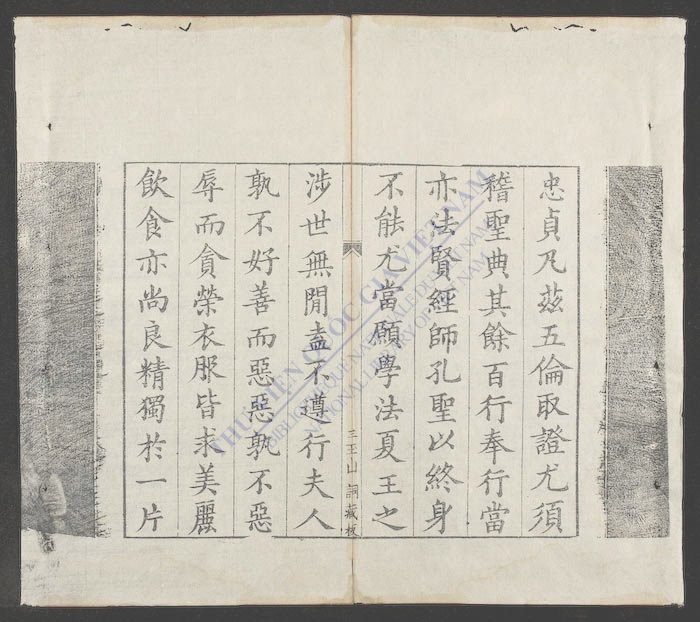 忠貞乃茲五倫取證尤須
稽聖典其餘百行奉行當
亦法賢經師孔聖以終身
不能尤當願學法夏王之
三王山祠藏板
涉世無閒盍不遵行夫人
孰不好善而惡惡孰不惡
辱而貪榮衣服皆求美麗
飲食亦尚良精獨於一片
THƯ VIỆN QUỐC GIA VIỆT NAM
BIBLIOTHÈQUE NATIONALE DU VIETNAM
NATIONAL LIBRARY OF VIETNAM